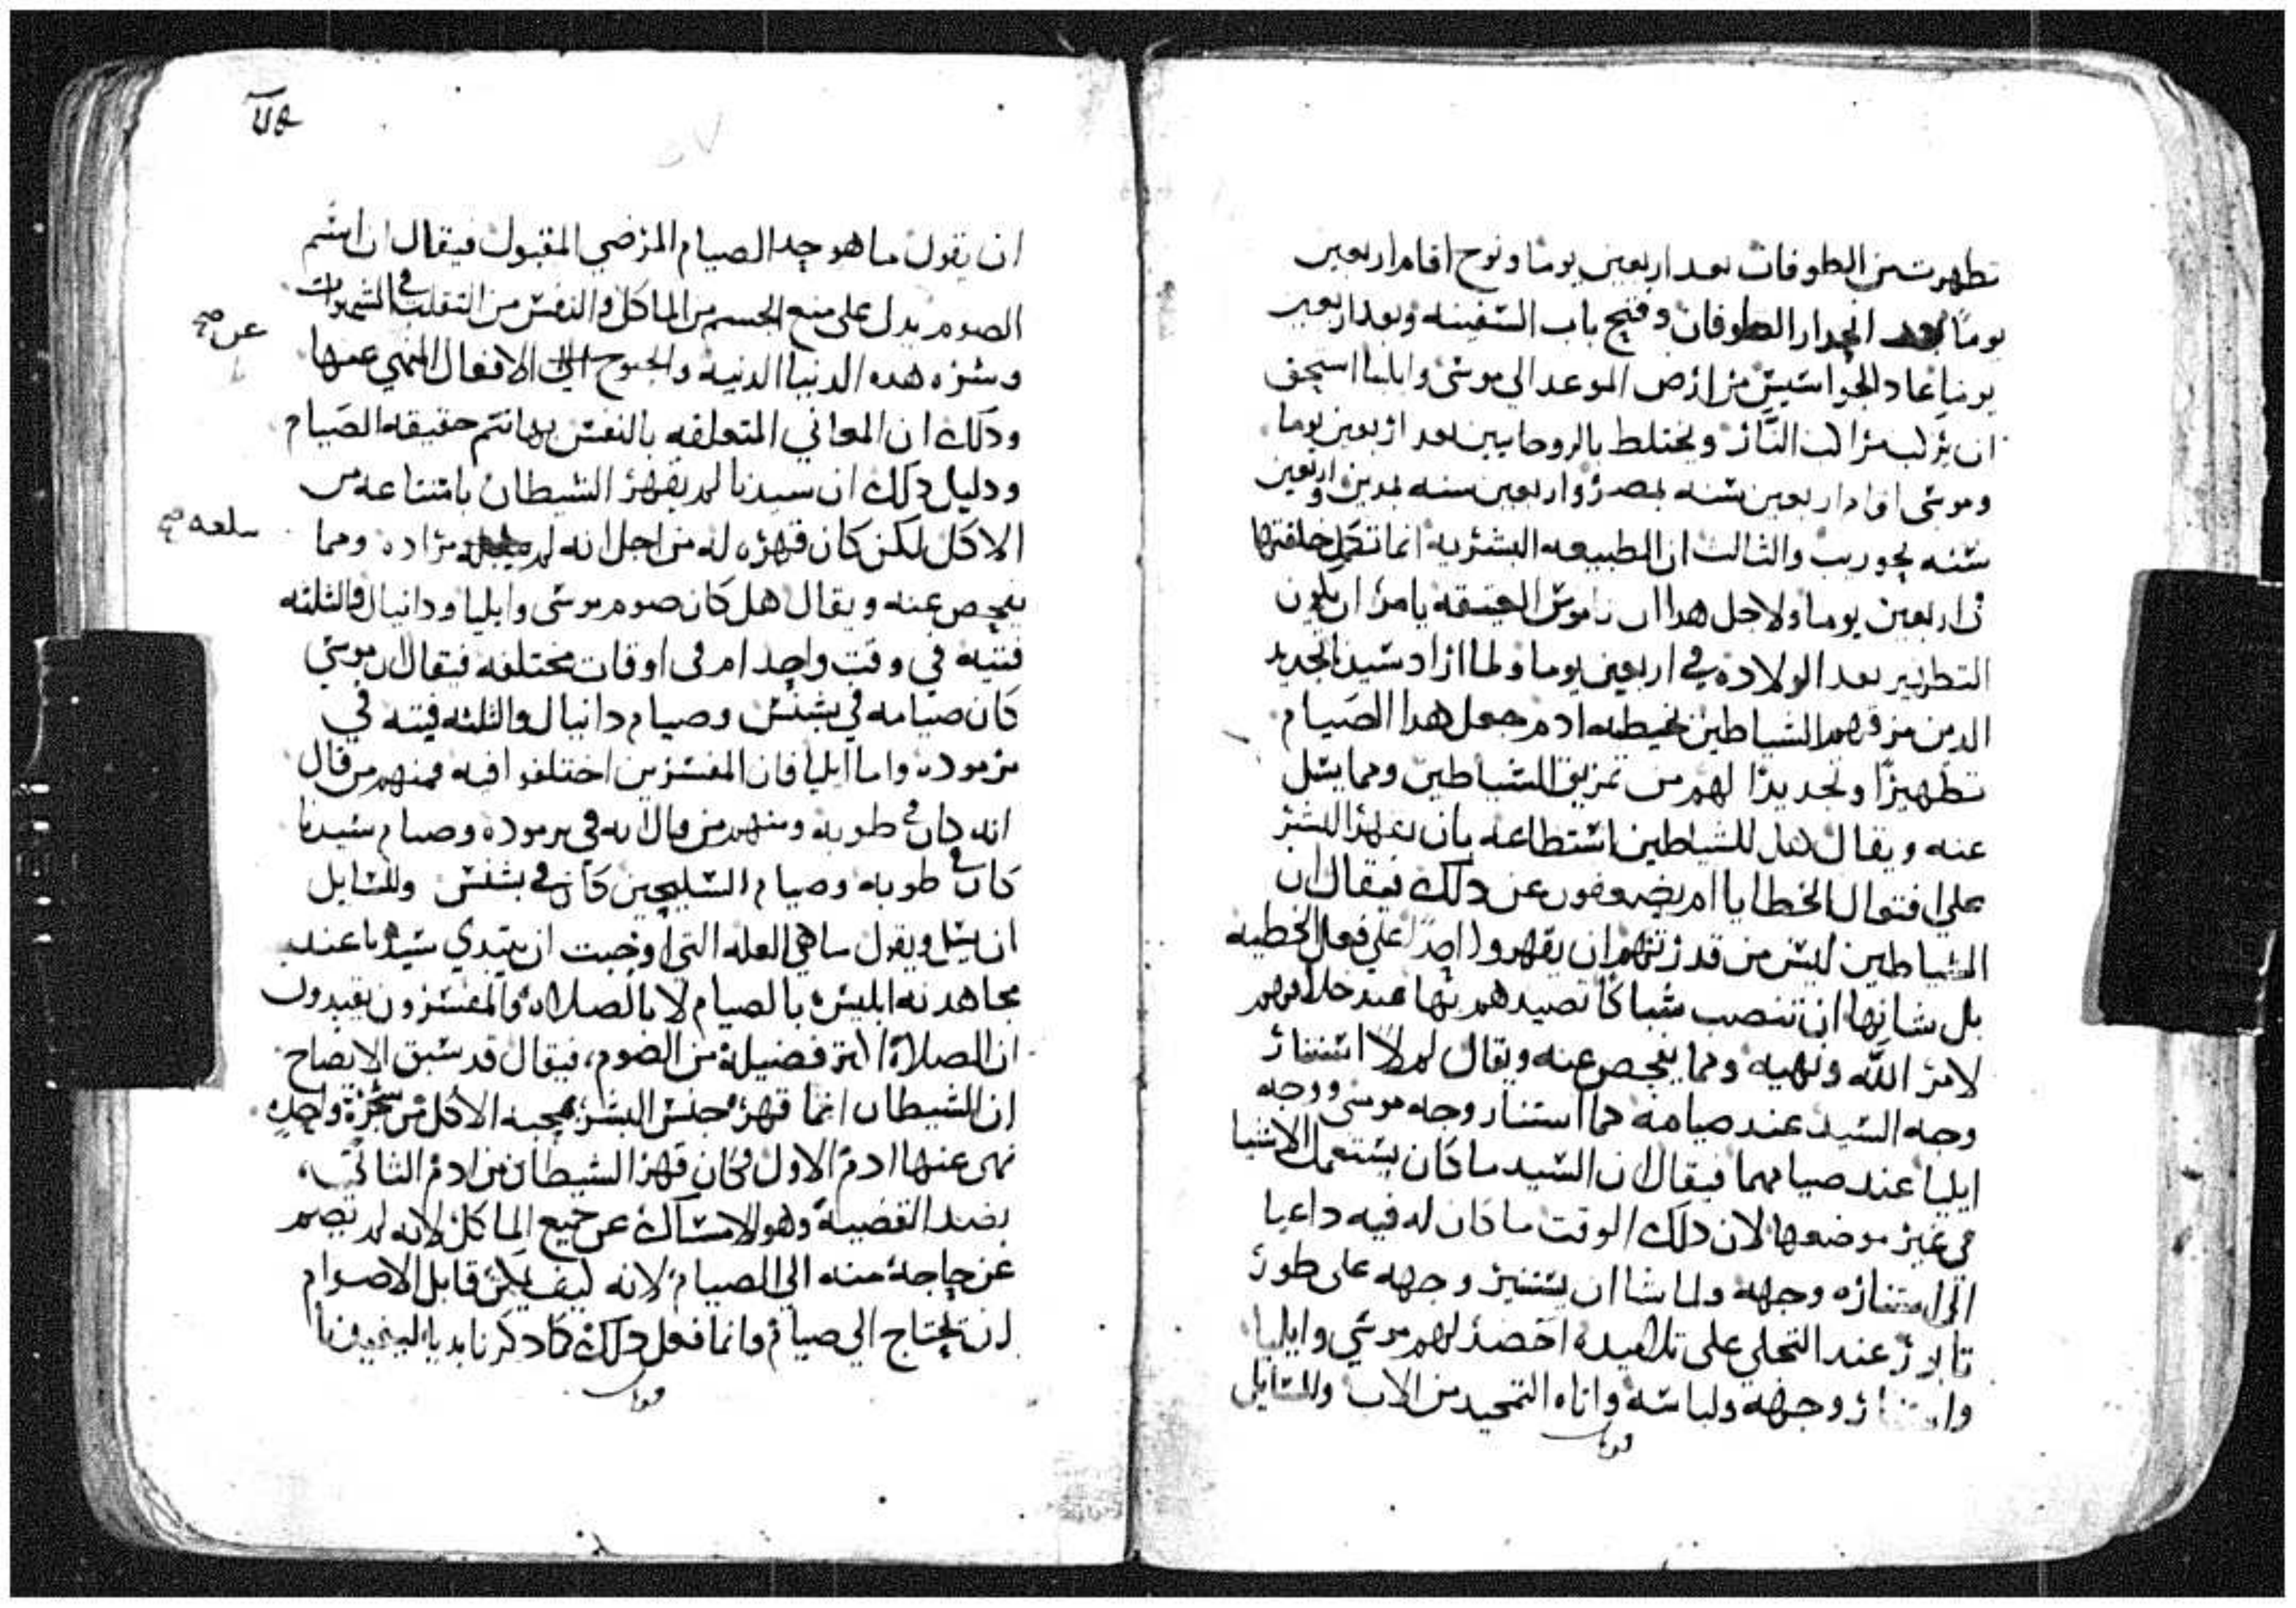 تطهرت من الطوفان بعد اربعين يوما ونوح اقام اربعين
يوما بعد انحدار الطوفان وفتح باب السفينه وبعد اربعين
يوما عاد الجواسيس من ارض الموعد الى موسى وايليا استحق
ان يركب مراكب النار ويختلط بالروحانيين بعد اربعين يوما
وموسى اقام اربعين سنه بمصر واربعين سنه بمدين واربعين
سنه بحوريب والثالث ان الطبيعه البشريه انما تكمل خلقتها
في اربعين يوما ولاجل هدا ان ناموس العتيقه يامر ان يكون
التطهير بعد الولاده في اربعين يوما ولما اراد سيدنا تجديد
الدين مزقهم الشياطين بخطيه ادم جعل هدا الصيام
تطهيرا وتجديدا لهم من تمزيق الشياطين ومما يسل
عنه ويقال هل للشياطين استطاعه بان يقهر البشر
على افتعال الخطايا ام يضعفون عن دلك فيقال ان
الشياطين ليس من قدرتهم ان يقهروا احدا على فعل الخطيه
بل شانها ان تنصب شباكا تصيدهم بها عند خلافهم
لامر الله ونهيه ومما يفحص عنه ويقال لم لا استنار
وجه السيد عند صيامه كما استنار وجه موسى ووجه
ايليا عند صيامهما فيقال ان السيد ما كان يستعمل الاشيا
في غير موضعها لان دلك الوقت ما كان له فيه داعيا
الى استناره وجهه ولما شا ان يستنير وجهه على طور
تابور عند التجلي على تلاميده احضر لهم موسى وايليا
واستنار وجهه ولباسه واتاه التمجيد من الاب وللسايل
ان يقول ما هو حد الصيام المرضي المقبول فيقال ان اسم
الصوم يدل على منع الجسم من الماكل والنفس من التقلب في الشهوات
وشره هده الدنيا الدنيه والجنوح الى الافعال المنهي عنها
عن صح
ودلك ان المعاني المتعلقه بالنفس بها تتم حقيقه الصيام
ودليل دلك ان سيدنا لم يقهر الشيطان بامتناعه من
الاكل لكن كان قهره له من اجل انه لم مراده ومما
يبلغه صح
يفحص عنه ويقال هل كان صوم موسى وايليا ودانيال والثلثه
فتيه في وقت واحد ام في اوقات مختلفه فيقال ان موسى
كان صيامه في بشنس وصيام دانيال والثلثه فتيه في
برموده واما ايليا فان المفسرين اختلفوا فيه فمنهم من قال
انه كان في طوبه ومنهم من قال انه في برموده وصيام سيدنا
كان في طوبه وصيام السليحين كان في بشنس وللسايل
ان يسل ويقول ما هي العله التي اوجبت ان يبتدي سيدنا عند
مجاهدته ابليس بالصيام لا بالصلاه والمفسرون يفيدون
ان الصلاة اكتر فضيلة من الصوم، فيقال قد سبق الايضاح
ان الشيطان انما قهر جنس البشر بمحبه الاكل من شجرة واحده
نهي عنها ادم الاول فكان قهر الشيطان من ادم الثاني،
بضد القضية وهو الامساك عن جميع الماكل لانه لم يصم
عن حاجة منه الى الصيام لانه كيف يمكن قابل الاصوام
ان يحتاج الى صيام وانما فعل دلك كما دكرنا بديا ليعيننا
قوبل